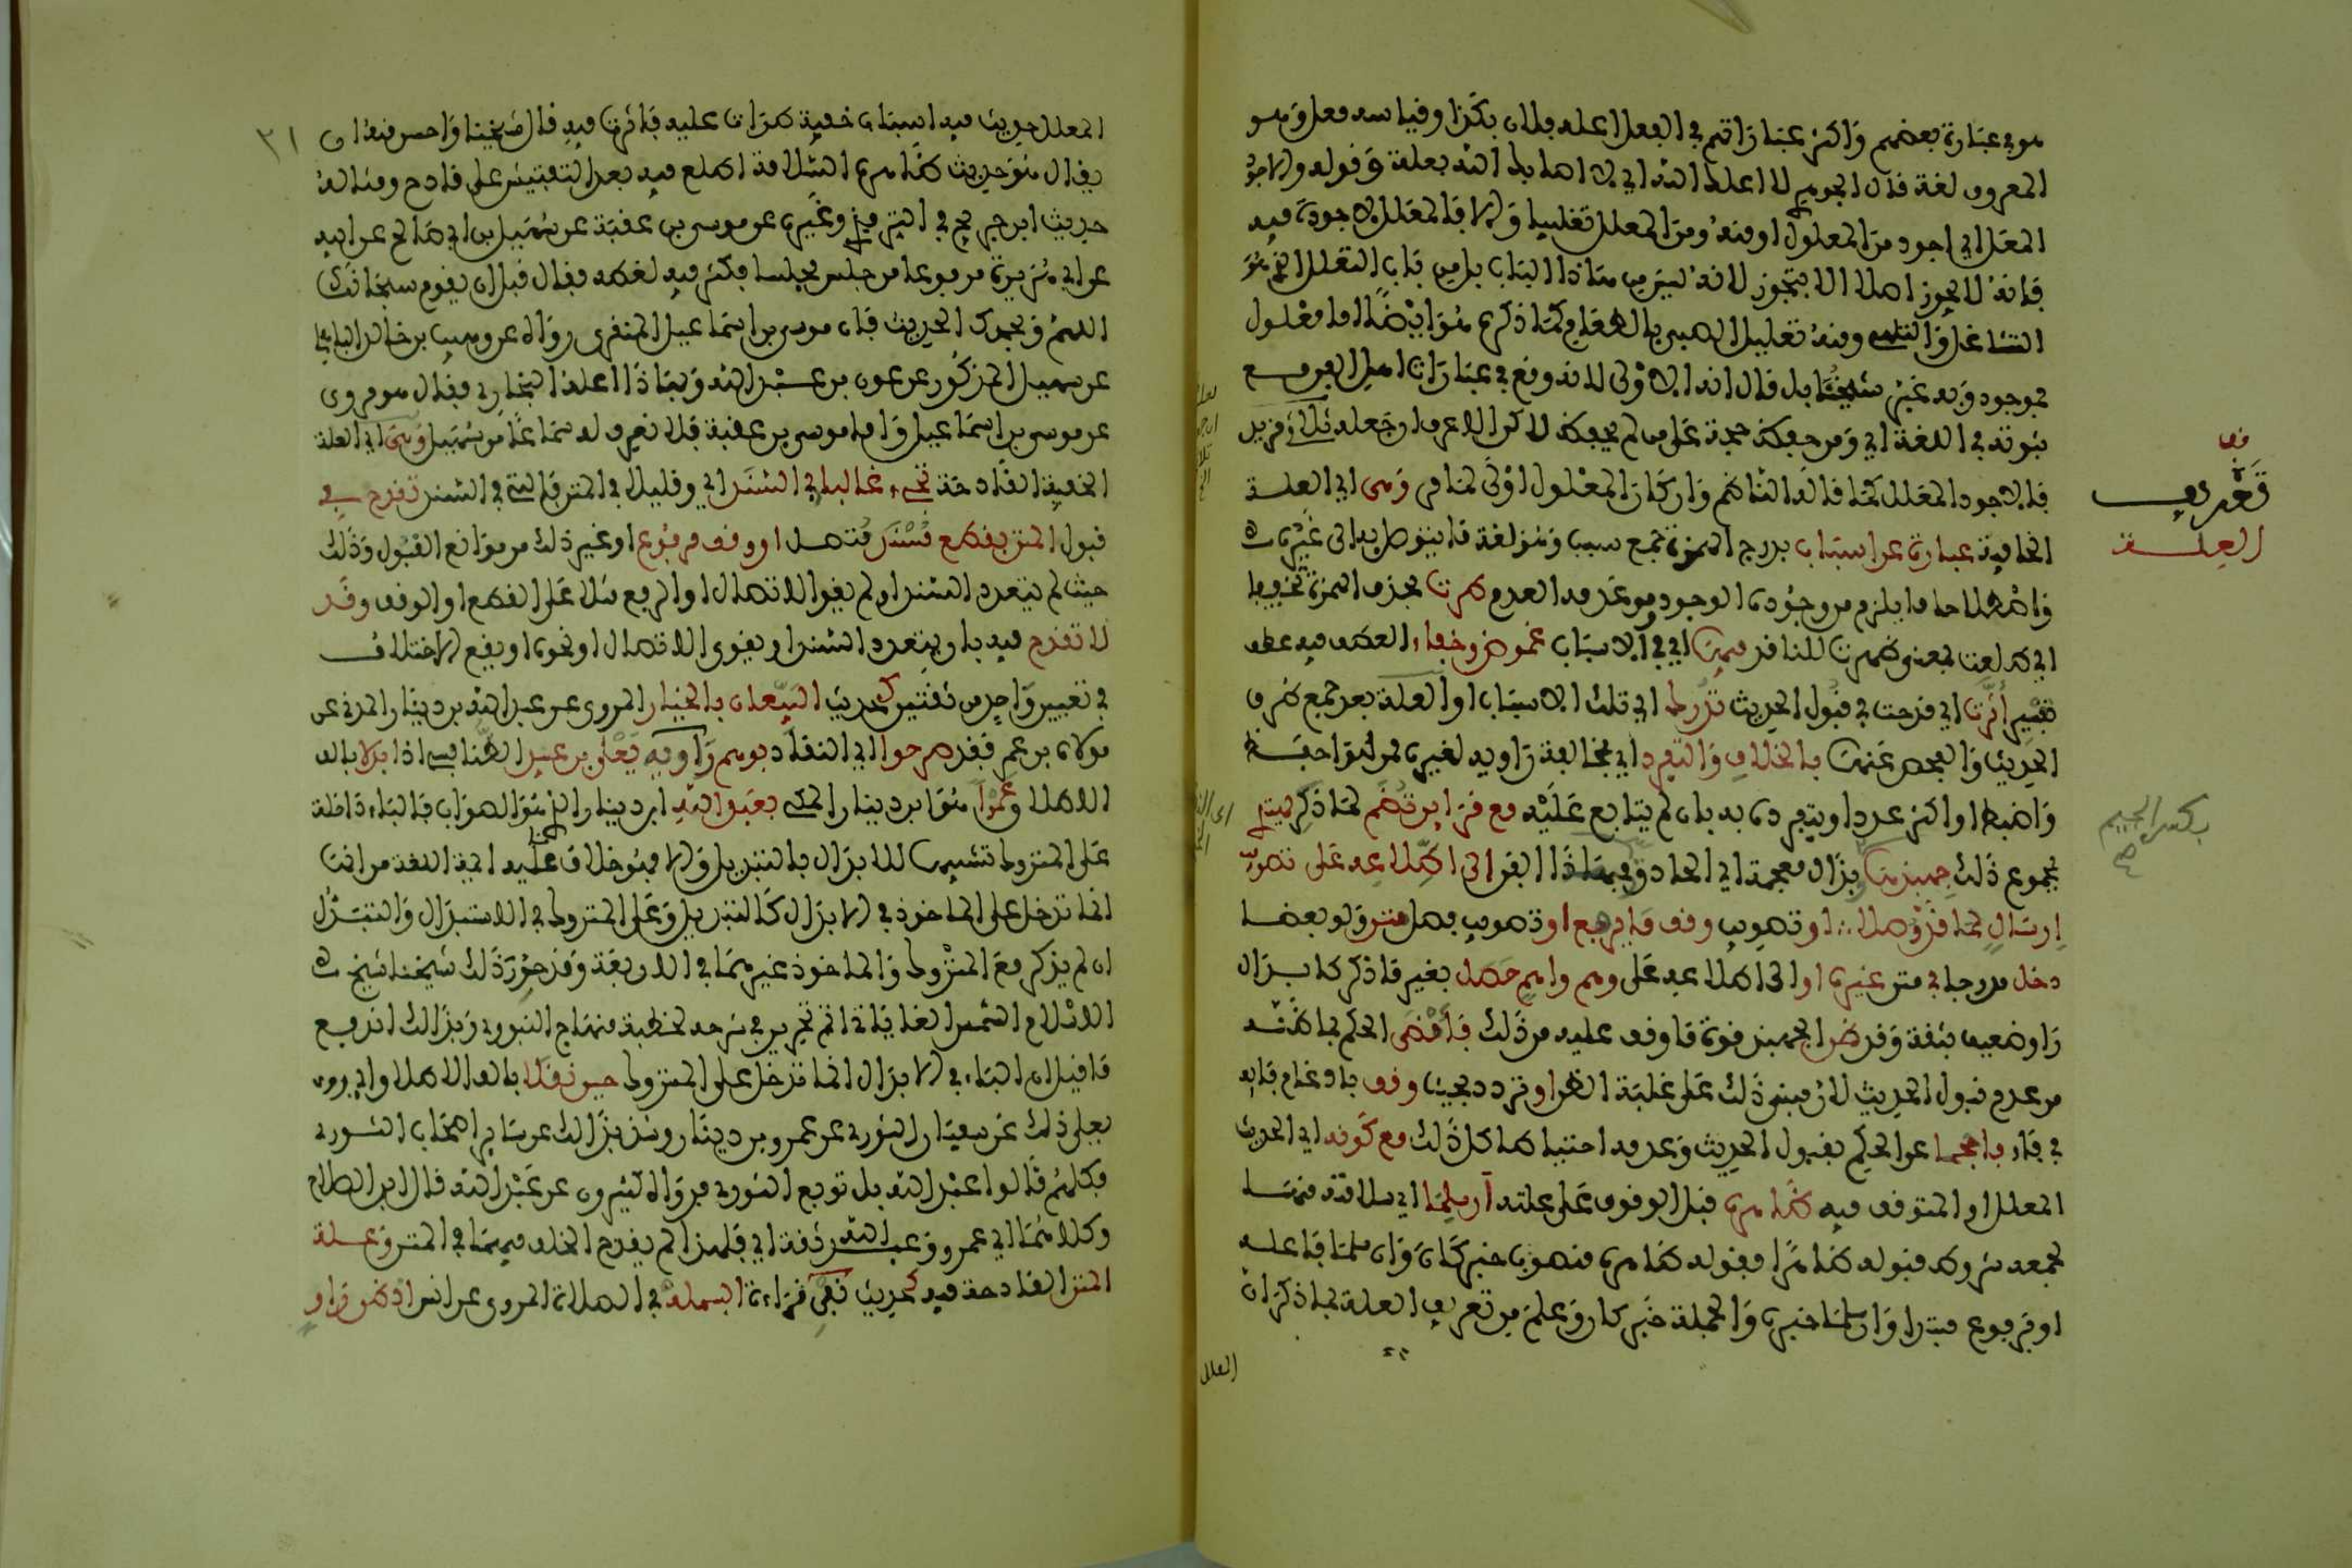 هو في عبارة بعضهم وأكثر عباراتهم في الفعل أعله فلان بكذا وقياسه معل وهو
المعروف لغة قال الجوهري لا أعلك الله أي لا أصابك الله بعلة وقوله والأجود
المعل أي أجود من المعلول أو منه ومن المعلل تغليبا وإلا فالمعلل لا جودة فيه
فإنه لا يجوز أصلا إلا بتجوز لأنه ليس من هذا الباب بل من باب التعلل الذي هو
التشاغل والتلهي ومنه تعليل الصبي بالطعام كما ذكره هو أيضا أما معلول
فموجود وبه عبر شيخنا بل قال إنه الأولى لأنه وقع في عبارات أهل الفن مع
ثبوته في اللغة أي ومن حفظ حجة على من لم يحفظ لكن الأعرف أن فعله ثلاثي مزيد
فالأجود المعلل كما قاله الناظم وإن كان المعلول أولى لما مر وهي أي العلة
الخافية عبارة عن أسباب بدرج الهمزة جمع سبب وهو لغة ما يتوصل به إلى غيره
واصطلاحا ما يلزم من وجوده الوجود ومن عدمه العدم طرت بحذف الهمزة تخفيفا
أي طلعت بمعنى ظهرت للناقد فيها أي في الأسباب غموض وخفاء العطف فيه عطف
تفسير أثرت أي قدحت في قبول الحديث تدرك أي تلك الأسباب أو العلة بعد جمع طرق
الحديث والفحص عنها بالخلاف والتفرد أي بمخالفة راويه لغيره ممن هو أحفظ
وأضبط أو أكثر عددا وبتفرده به بأن لم يتابع عليه مع قرائن تضم لما ذكر يهتدي
بمجموع ذلك جهبذها بذال معجمة أي الحاذق في هذا الفن إلى اطلاعه على تصويب
إرسال لما قد وصلا أو تصويب وقف ما يرفع أو تصويب فصل متن ولو بعضا
دخل مدرجا في متن غيره أو إلى اطلاعه على وهم واهم حصل بغير ما ذكر كإبدال
راو ضعيف بثقة وقد ظن الجهبذ قوة ما وقف عليه من ذلك فأمضى الحكم بما ظنه
من عدم قبول الحديث لأن مبنى ذلك على غلبة الظن أو تردد بحيث وقف بإدغام فائه
في فاء فأحجما عن الحكم بقبول الحديث وعدمه احتياطا كل ذلك مع كونه أي الحديث
المعلل أو المتوقف فيه ظاهره قبل الوقوف على علته أن سلما أي سلامته منها
لجمعه شروط قبوله ظاهرا فقوله ظاهره منصوب خبر كان وأن سلما فاعله
أو مرفوع مبتدأ وأن سلما خبره والجملة خبر كان وعلم من تعريف العلة بما ذكر أن
تعريف
العلة
بكسر الجيم
صح
العلل
٣١
المعلل حديث فيه أسباب خفية طرأت عليه فأثرت فيه قال شيخنا وأحسن منه أن
يقال هو حديث ظاهره السلامة اطلع فيه بعد التفتيش على قادح ومثاله
حديث ابن جريج في الترمذي وغيره عن موسى بن عقبة عن سهيل بن أبي صالح عن أبيه
عن أبي هريرة مرفوعا من جلس مجلسا فكثر فيه لغطه فقال قبل أن يقوم سبحانك
اللهم وبحمدك الحديث فإن موسى بن إسماعيل المنقري رواه عن وهيب بن خالد الباهلي
عن سهيل المذكور عن عون بن عبد الله وبهذا أعله البخاري فقال هو مروي
عن موسى بن إسماعيل وأما موسى بن عقبة فلا نعرف له سماعا من سهيل وهي أي العلة
الخفية القادحة تجيء غالبا في السند أي وقليلا في المتن فالتي في السند تقدح في
قبول المتن بقطع مسند متصل أو وقف مرفوع أو غير ذلك من موانع القبول وذلك
حيث لم يتعدد السند أو لم يقو الاتصال أو الرفع مثلا على القطع أو الوقف وقد
لا تقدح فيه بأن يتعدد السند أو يقوى الاتصال أو نحوه أو يقع الاختلاف
في تعيين واحد من ثقتين كحديث البيعان بالخيار المروي عن عبد الله بن دينار المدني عن
مولاه ابن عمر فقد صرحوا أي النقاد بوهم راويه يعلى بن عبيد الطنافسي إذ أبدلا بألف
الإطلاق وعمرا هو ابن دينار المكي بعبد الله ابن دينار الذي هو الصواب فالباء داخلة
على المتروك تشبيها للإبدال بالتبديل وإلا فهو خلاف ما عليه أئمة اللغة من أنها
إنما تدخل على المأخوذ في الإبدال كالتبديل وعلى المتروك في الاستبدال والتبدل
إن لم يذكر مع المتروك والمأخوذ غيرهما في الأربعة وقد حرر ذلك شيخنا شيخ
الإسلام الشمس القاياتي أتم تحرير في شرحه لخطبة منهاج النووي وبذلك اندفع
ما قيل إن الباء في الإبدال إنما تدخل على المتروك حين نقلا بألف الإطلاق أي روى
يعلى ذلك عن سفيان الثوري عن عمرو بن دينار وشذ بذلك عن سائر أصحاب الثوري
فكلهم قالوا عبد الله بل توبع الثوري فرواه كثيرون عن عبد الله قال ابن الصلاح
وكلاهما أي عمرو وعبد الله ثقة أي فلهذا لم يقدح الخلف فيهما في المتن وعلة
المتن القادحة فيه كحديث نفي قراءة البسملة في الصلاة المروي عن أنس إذ ظن راو